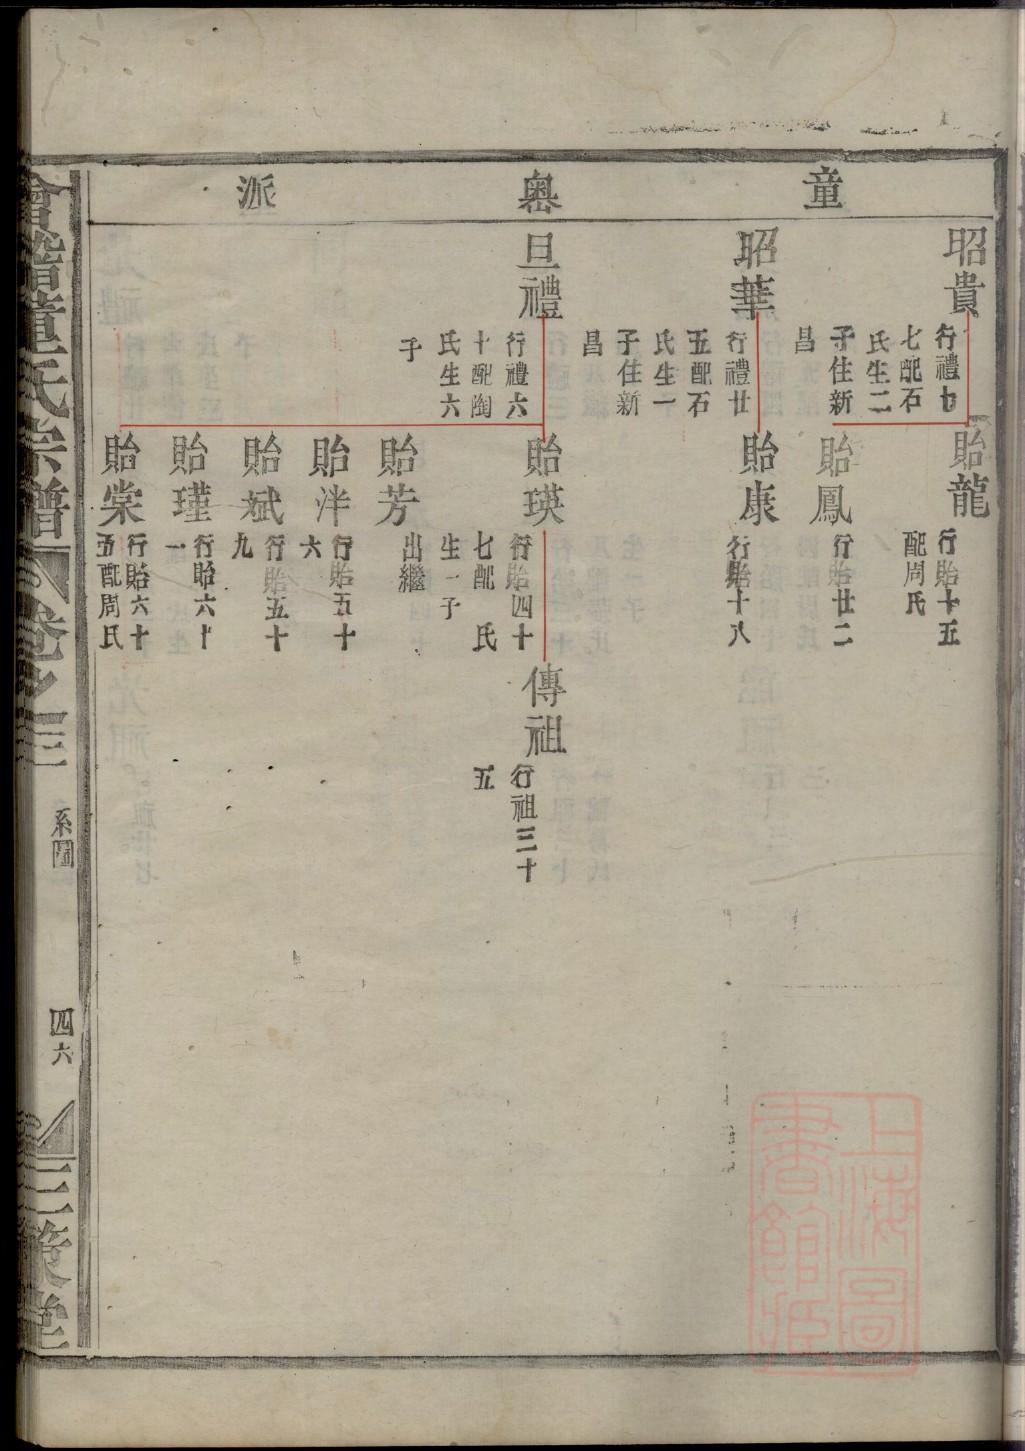 童奧派
昭貴
行禮七
七配石
氏生二
子住新
昌
昭華
行禮廿
五配石
氏生一
子住新
昌
旦禮
行禮六
十配陶
氏生六
子
貽龍
行貽十五
配周氏
貽鳳
行貽廿二
貽康
行貽十八
貽瑛
行貽四十
七配 氏
生一子
貽芳
出繼
貽泮
行貽五十
六
貽斌
行貽五十
九
貽瑾
行貽六十
一
貽棠
行貽六十
五配周氏
傳祖
行祖三十
五
會稽童氏宗譜
卷之三
系圖
四六
三策堂
上海圖
書館藏